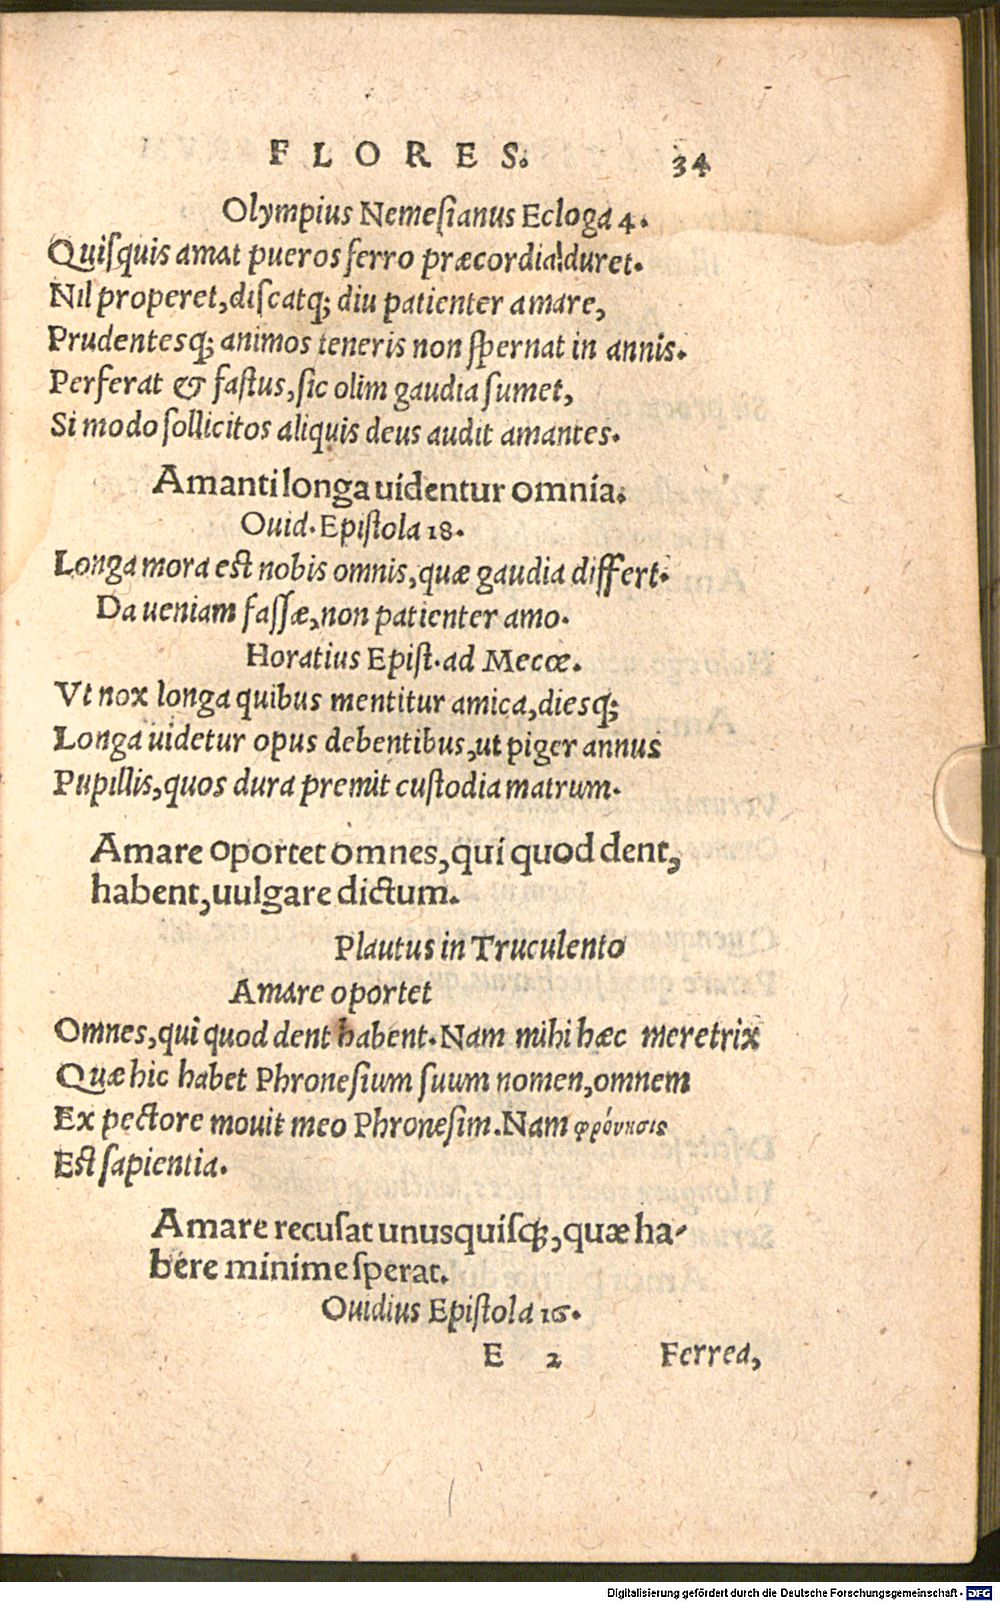 FLORES. 34
Olympius Nemeſianus Ecloga 4.
Quiſquis amat pueros ferro præcordia duret.
Nil properet, diſcatq; diu patienter amare,
Prudentesq; animos teneris non ſpernat in annis.
Perferat & faſtus, ſic olim gaudia ſumet,
Si modo ſollicitos aliquis deus audit amantes.
Amanti longa uidentur omnia.
Ouid. Epiſtola 18.
Longa mora est nobis omnis, quæ gaudia differt.
Da ueniam faſſæ, non patienter amo.
Horatius Epiſt. ad Mecœ.
Vt nox longa quibus mentitur amica, diesq;
Longa uidetur opus debentibus, ut piger annus
Pupillis, quos dura premit cuſtodia matrum.
Amare oportet omnes, qui quod dent,
habent, uulgare dictum.
Plautus in Truculento
Amare oportet
Omnes, qui quod dent habent. Nam mihi hæc meretrix
Quæ hic habet Phroneſium ſuum nomen, omnem
Ex pectore mouit meo Phroneſim. Nam φρόνησις
Eſt ſapientia.
Amare recuſat unusquiſq;, quæ ha-
bere minime ſperat.
Ouidius Epiſtola 16.
E 2 Ferrea,
Digitalisierung gefördert durch die Deutsche Forschungsgemeinschaft - DFG